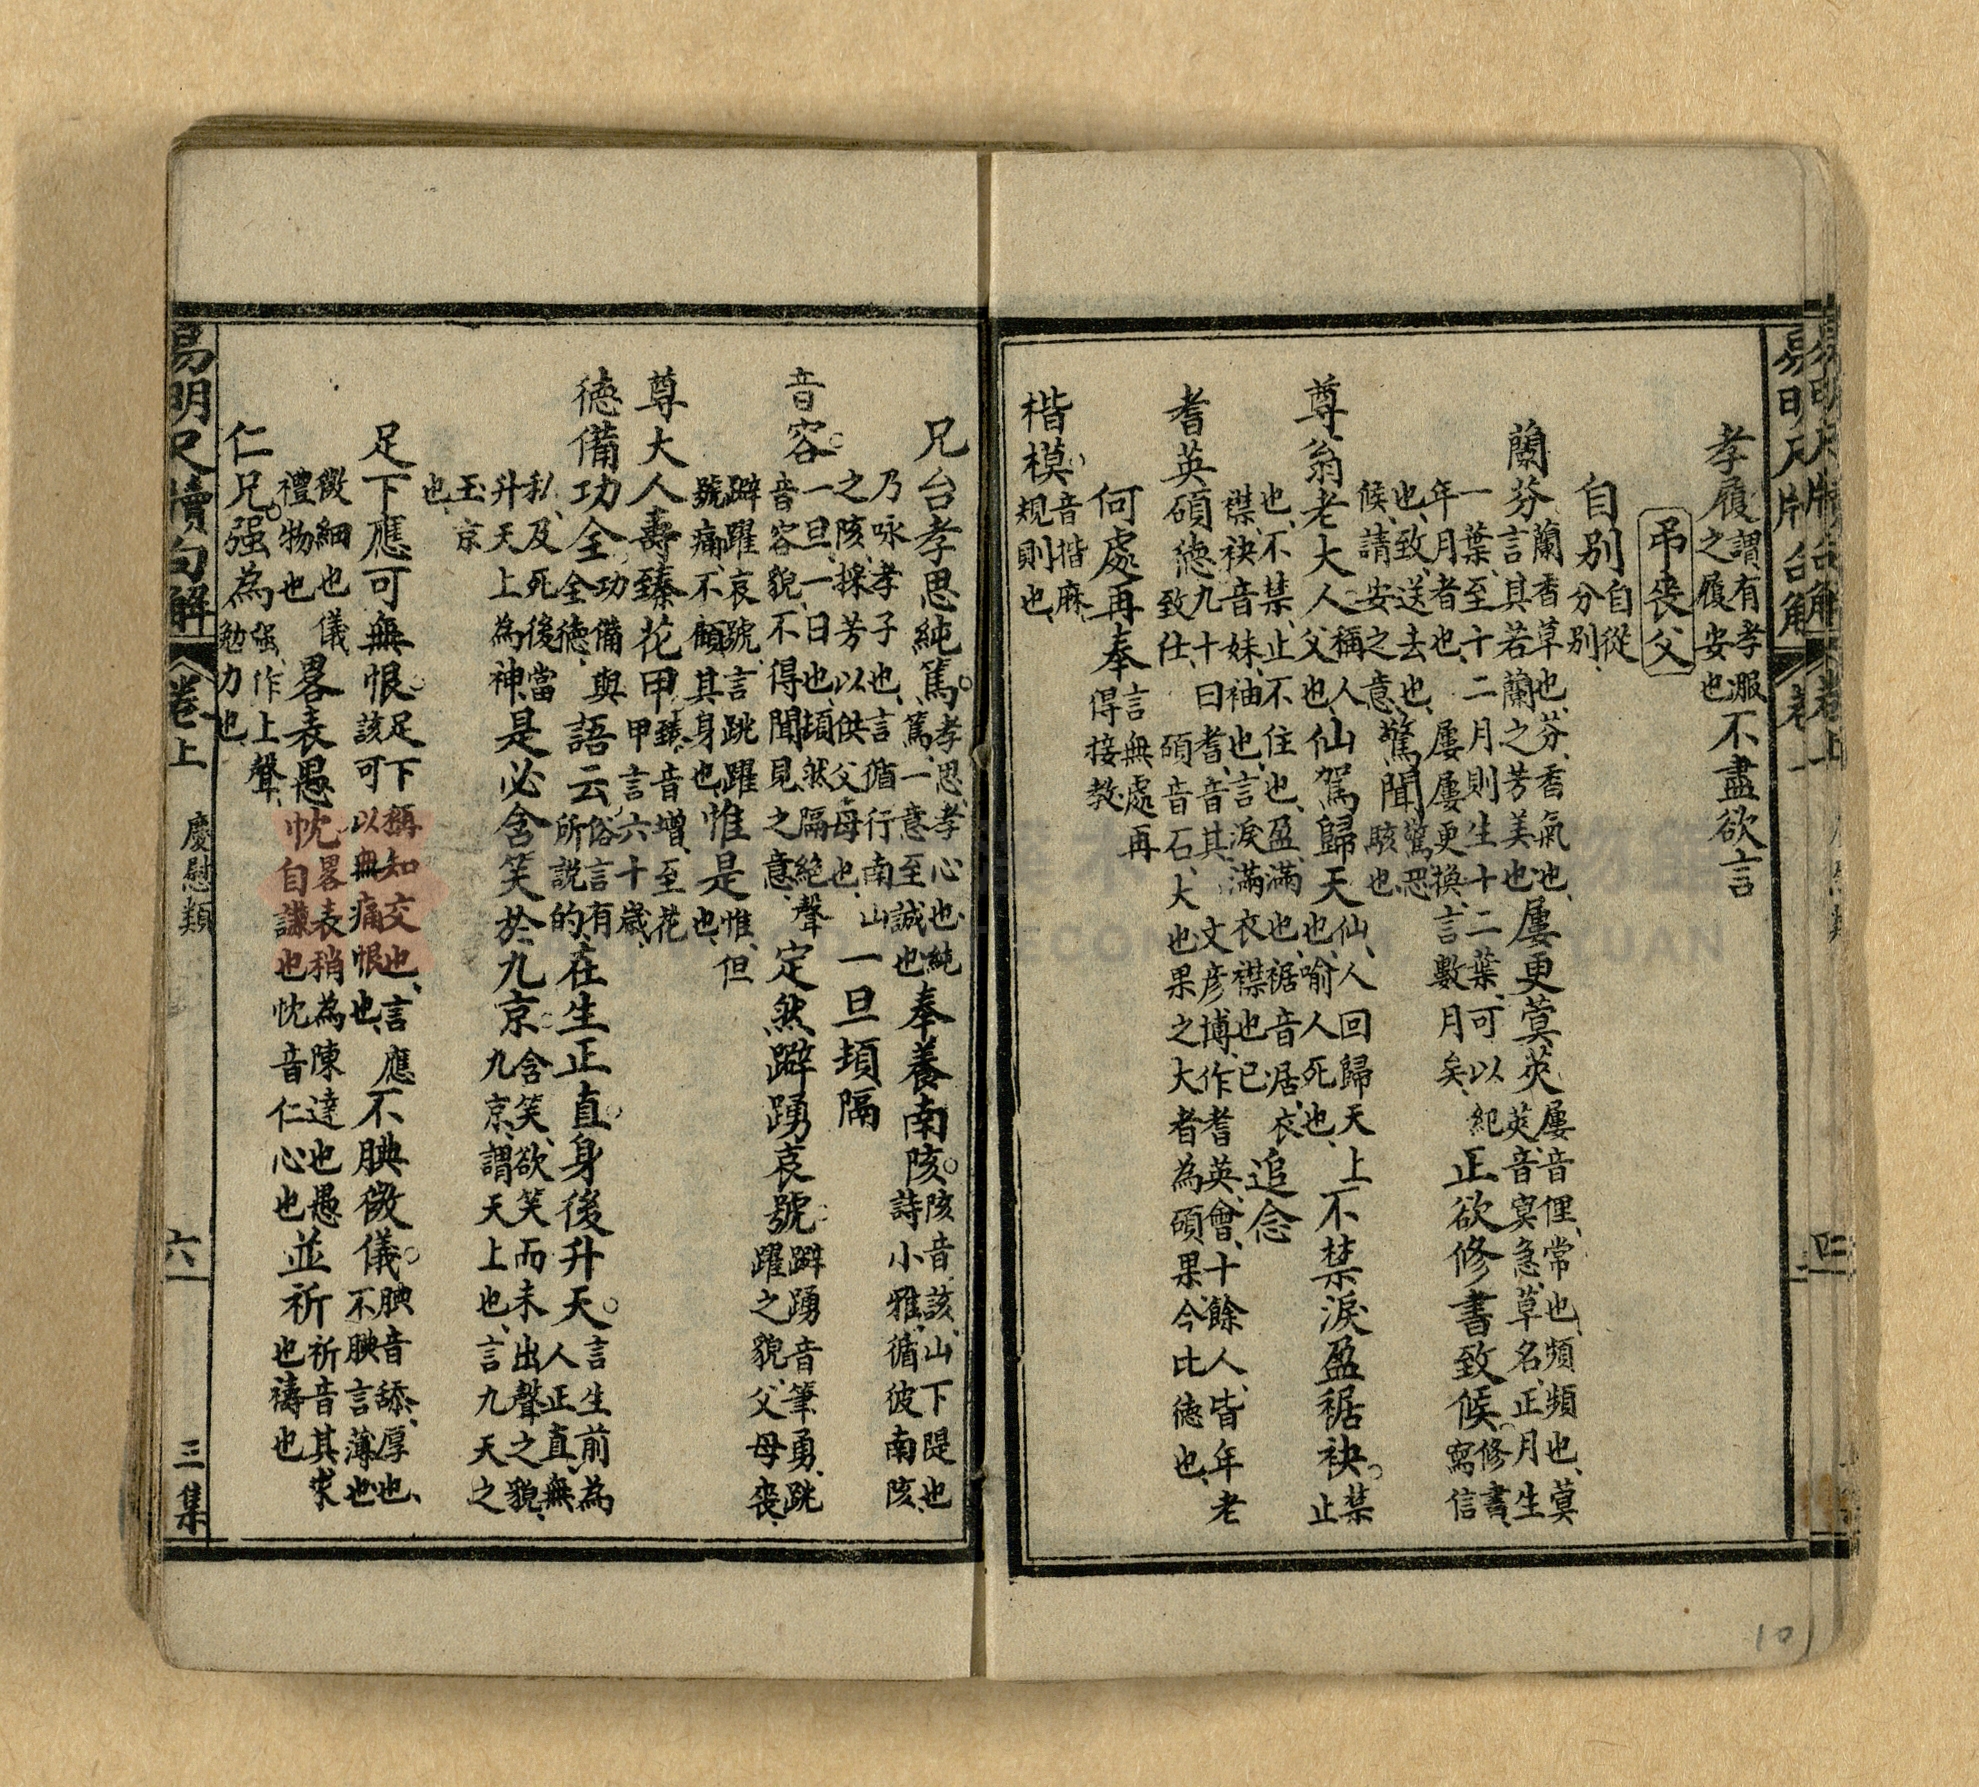 孝履謂有孝服之履安也不盡欲言
弔喪父
自別自從分別
蘭芬蘭香草也芬香氣也言其若蘭之芳美也屢更蓂莢屢音俚常也頻頻也蓂莢音寞急草名正月生
一葉至十二月則生十二葉可以紀年月者也屢屢更換言數月矣正欲修書致候修書寫信
也致送去也候請安之意驚聞驚恐駭也
尊翁老大人稱人父也仙駕歸天仙人回歸天上也喻人死也不禁淚盈裾袂禁止
也不禁止不住也盈滿也裾音居衣襟袂音妹袖也言淚滿衣襟也已追念
耆英碩德九十曰耆音其文彥博作耆英會十餘人皆年老致仕碩音石大也果之大者為碩果今比德也
何處再奉言無處再得接教
楷模音揩麻規則也
兄台孝思純篤孝思孝心也純篤一意至誠也奉養南陔陔音該山下隄也詩小雅循彼南陔
乃咏孝子也言循行南山之陔採芳以供父母也一旦頃隔
一旦一日也頃然隔絕聲
音容音容貌不得聞見之意定然躃踴哀號躃踴音筆勇跳躍之貌父母喪
躃躍哀號言跳躍號痛不顧其身也惟是惟但也
尊大人壽臻花甲臻音增至花甲言六十歲
德備功全功備與全德語云俗言有所說的在生正直身後升天言生前為人正直無
私及死後當升天上為神是必含笑於九京含笑欲笑而未出聲之貌九京謂天上也言九天之
玉京也
足下應可無恨足下稱知交也言應該可以無痛恨也不腆微儀腆音舔厚也不腆言薄也
微細也儀禮物也畧表愚忱畧表稍為陳達也愚自謙也忱音仁心也並祈祈音其求也禱也
仁兄强為强作上聲勉力也
易明尺牘句解
卷上
慶慰類
六
三集
10